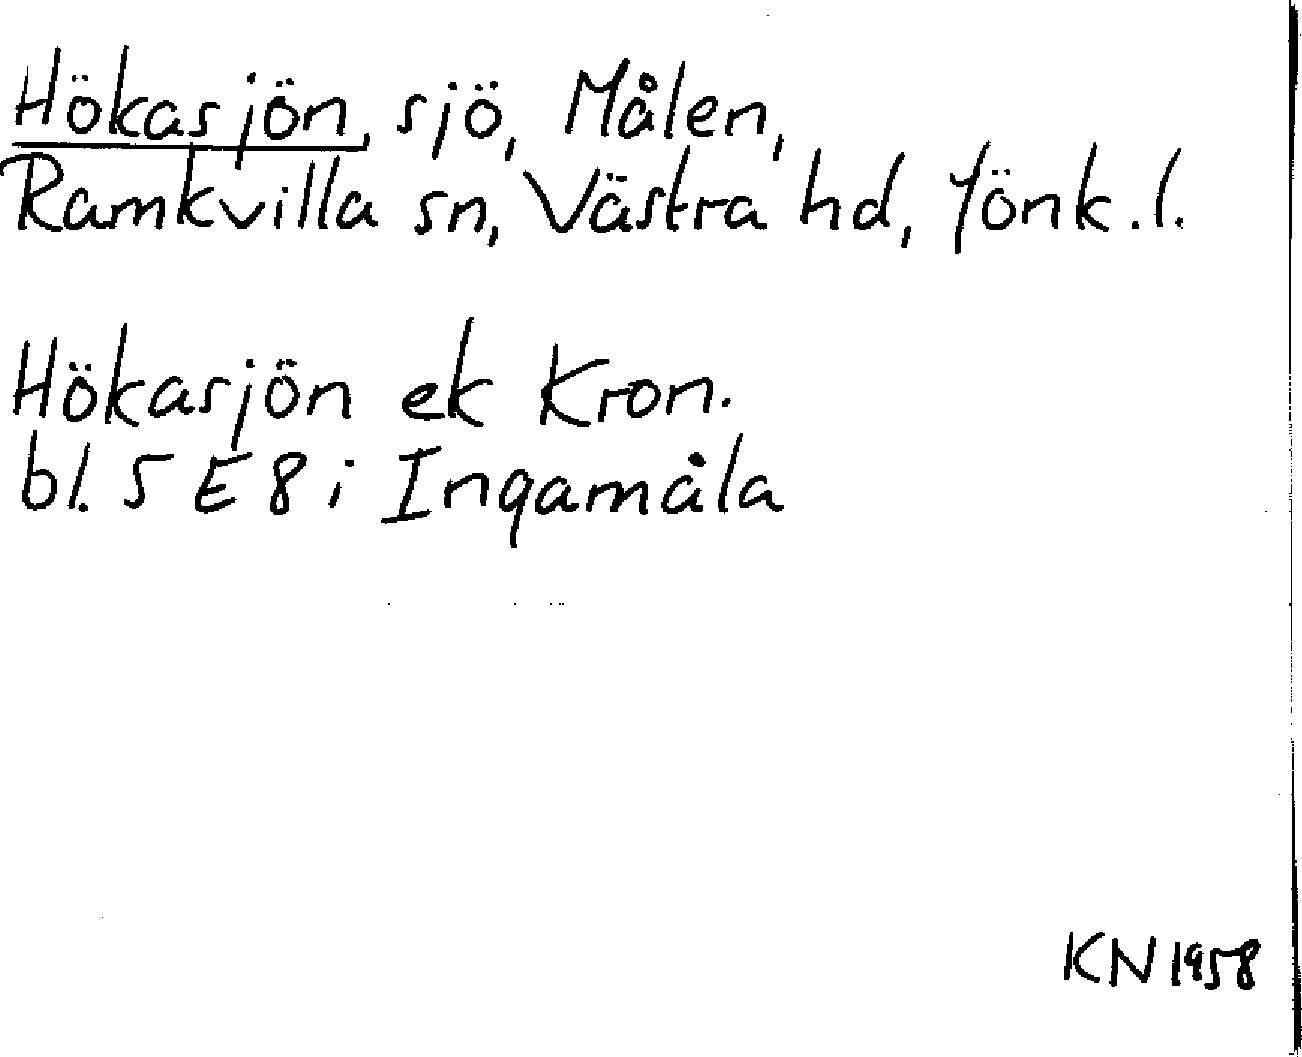 Hökasjön, sjö, Målen,
Ramkvilla sn, Västra hd, Jönk.l.
Hökasjön ek Kron.
bl. 5 E 8 i Ingamåla
KN 1958